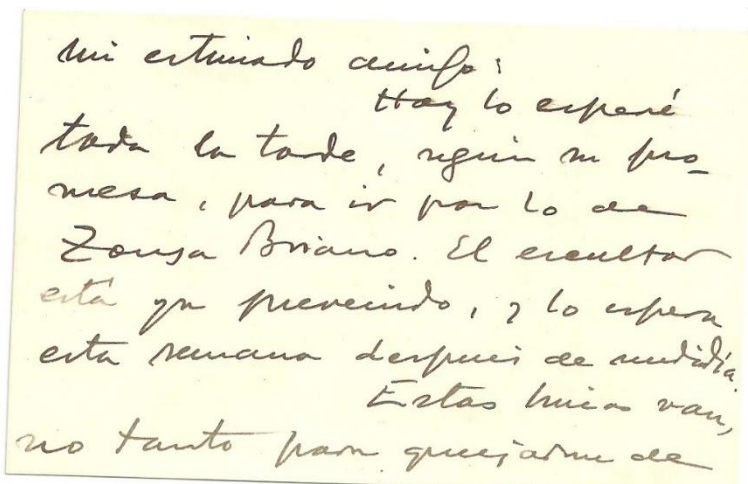 Mi estimado amigo:
Hoy lo esperé
toda la tarde, según su pro-
mesa, para ir por lo de
Zonza Briano. El escultor
está ya prevenido, y lo espera
esta semana después de mediodía.
Estas líneas van,
no tanto para quejarme de